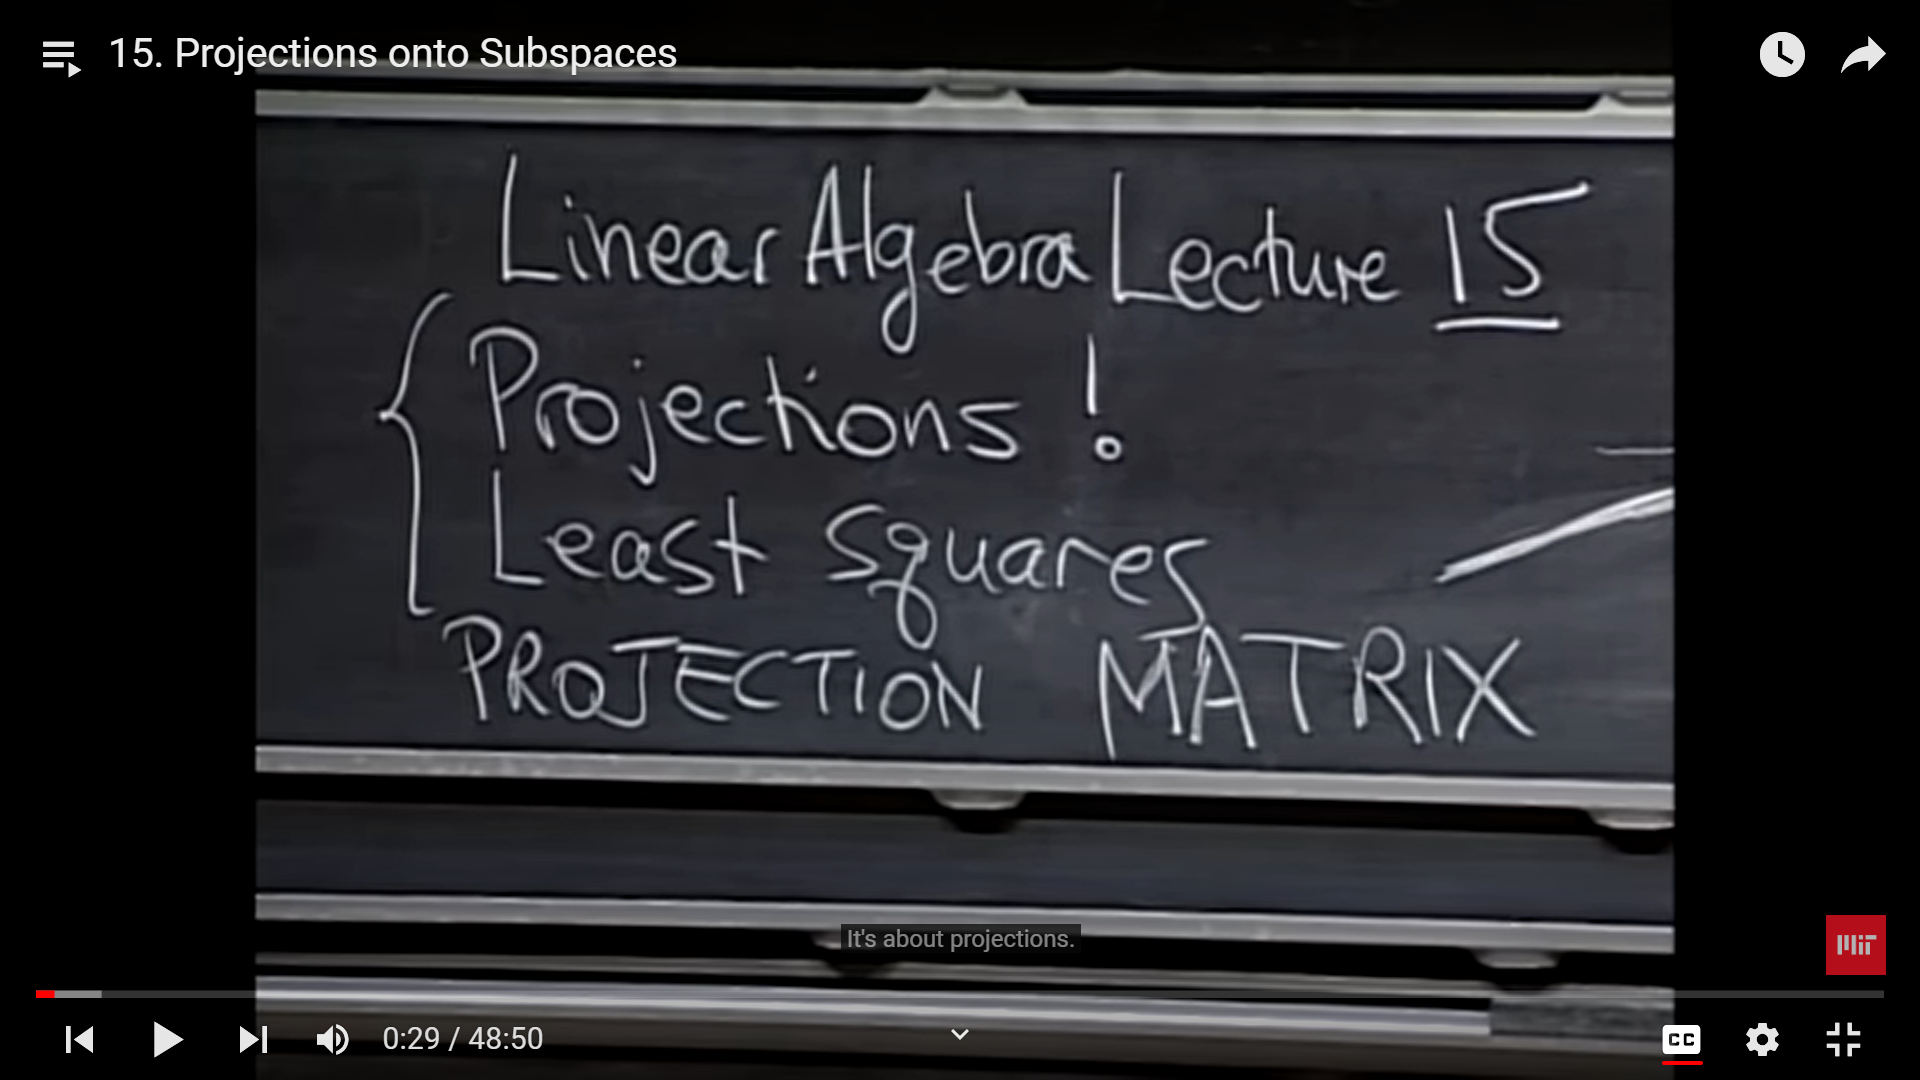 15. Projections onto Subspaces
Linear Algebra Lecture 15
Projections !
Least squares
PROJECTION MATRIX
It's about projections.
MIT
0:29 / 48:50
CC